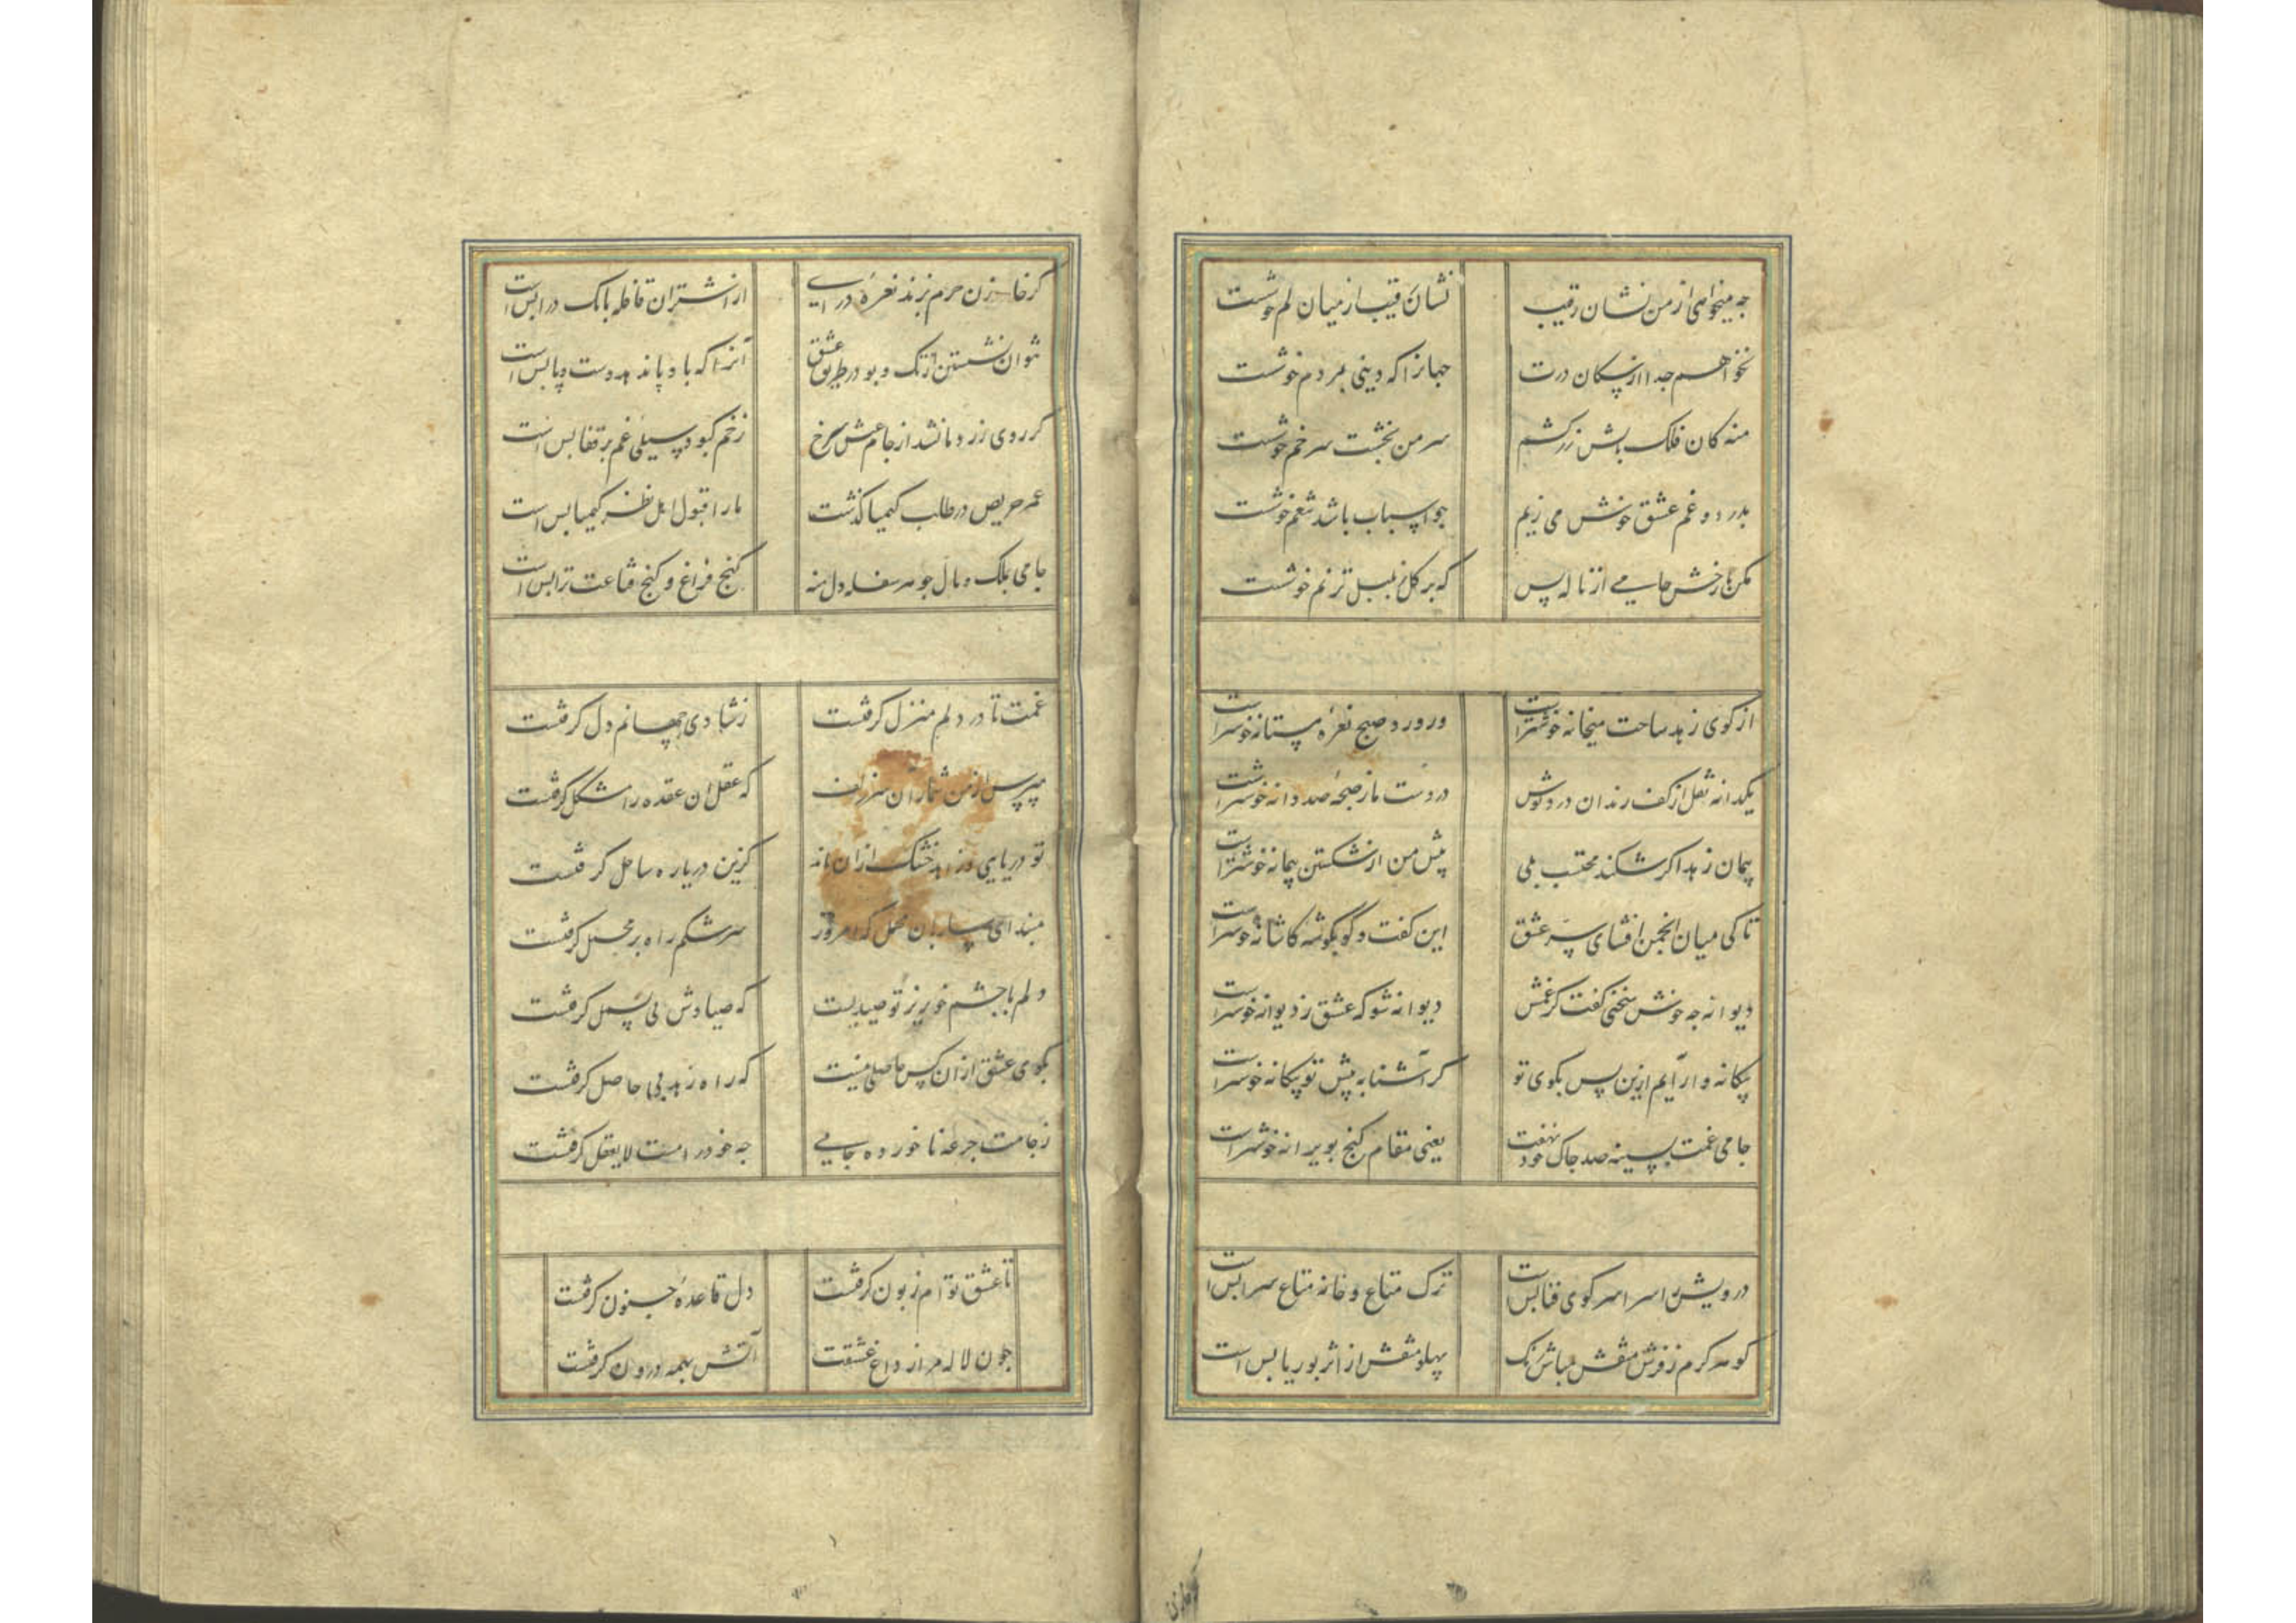 چه میخواهی از من نشان رقیب
نشان رقیب از میان گم خوشست
نخواهم جدا از سگان درت
جهانرا که دینی بمردم خوشست
منه کان فلک بالش زر کشم
سر من بخشت سر خم خوشست
بدرد و غم عشق خوش می زیم
چو اسباب باشد تنعم خوشست
مکن بار خش جامی از ناله پس
که بر گل ز بلبل ترنم خوشست
از کوی زهد ساحت میخانه خوشترست
ور ورد صبح نعره مستانه خوشترست
یکدانه نقل از کف رندان دردنوش
در دست ما ز سبحه صد دانه خوشترست
پیمان زهد اگر شکند محتسب بلی
پیش من از شکستن پیمانه خوشترست
تا کی میان انجمن افشای سر عشق
این گفت و گو بگوشه کاشانه خوشترست
دیوانه چه خوش سخنی گفت کز غمش
دیوانه شو که عشق ز دیوانه خوشترست
بیگانه وار آیم ازین پس بکوی تو
گر آشنا به پیش تو بیگانه خوشترست
جامی غمت بسینه صد چاک خود نهفت
یعنی مقام گنج بویرانه خوشترست
درویش را سرا سر کوی فنا بس است
ترک متاع و خانه متاع سرا بس است
گو مه کرم ز فرش منقش مباش رنگ
پهلو منقش از اثر بوریا بس است
گر خازن حرم نزند نعره درای
از اشتران قافله بانگ درا بس است
نتوان نشستن از تک و پو در طریق عشق
آنرا که باد پا ندهد دست پا بس است
گر روی زرد ما نشد از جام عیش سرخ
زخم کبود سیلی غم بر قفا بس است
عمر حریص در طلب کیمیا گذشت
ما را قبول اهل نظر کیمیا بس است
جامی بملک و مال چو هر سفله دل منه
کنج فراغ و گنج قناعت ترا بس است
غمت تا در دلم منزل گرفتست
ز شادی جهانم دل گرفتست
مپرس از من شمار آن سر زلف
که عقل آن عقده را مشکل گرفتست
تو دریایی و زاهد خشک ازان ماند
کزین دریا ره ساحل گرفتست
مبند ای ساربان محمل که امروز
سرشکم راه بر محمل گرفتست
دلم با چشم خونریز تو صیدیست
که صیادش پی بسمل گرفتست
بکوی عشق ازان کس حاصلی نیست
که راه زهد بی حاصل گرفتست
ز جامت جرعه نا خورده جامی
چه خود را مست لایعقل گرفتست
تا عشق تو ام زبون گرفتست
دل قاعده جنون گرفتست
چون لاله مرا ز داغ عشقت
آتش بهمه درون گرفتست